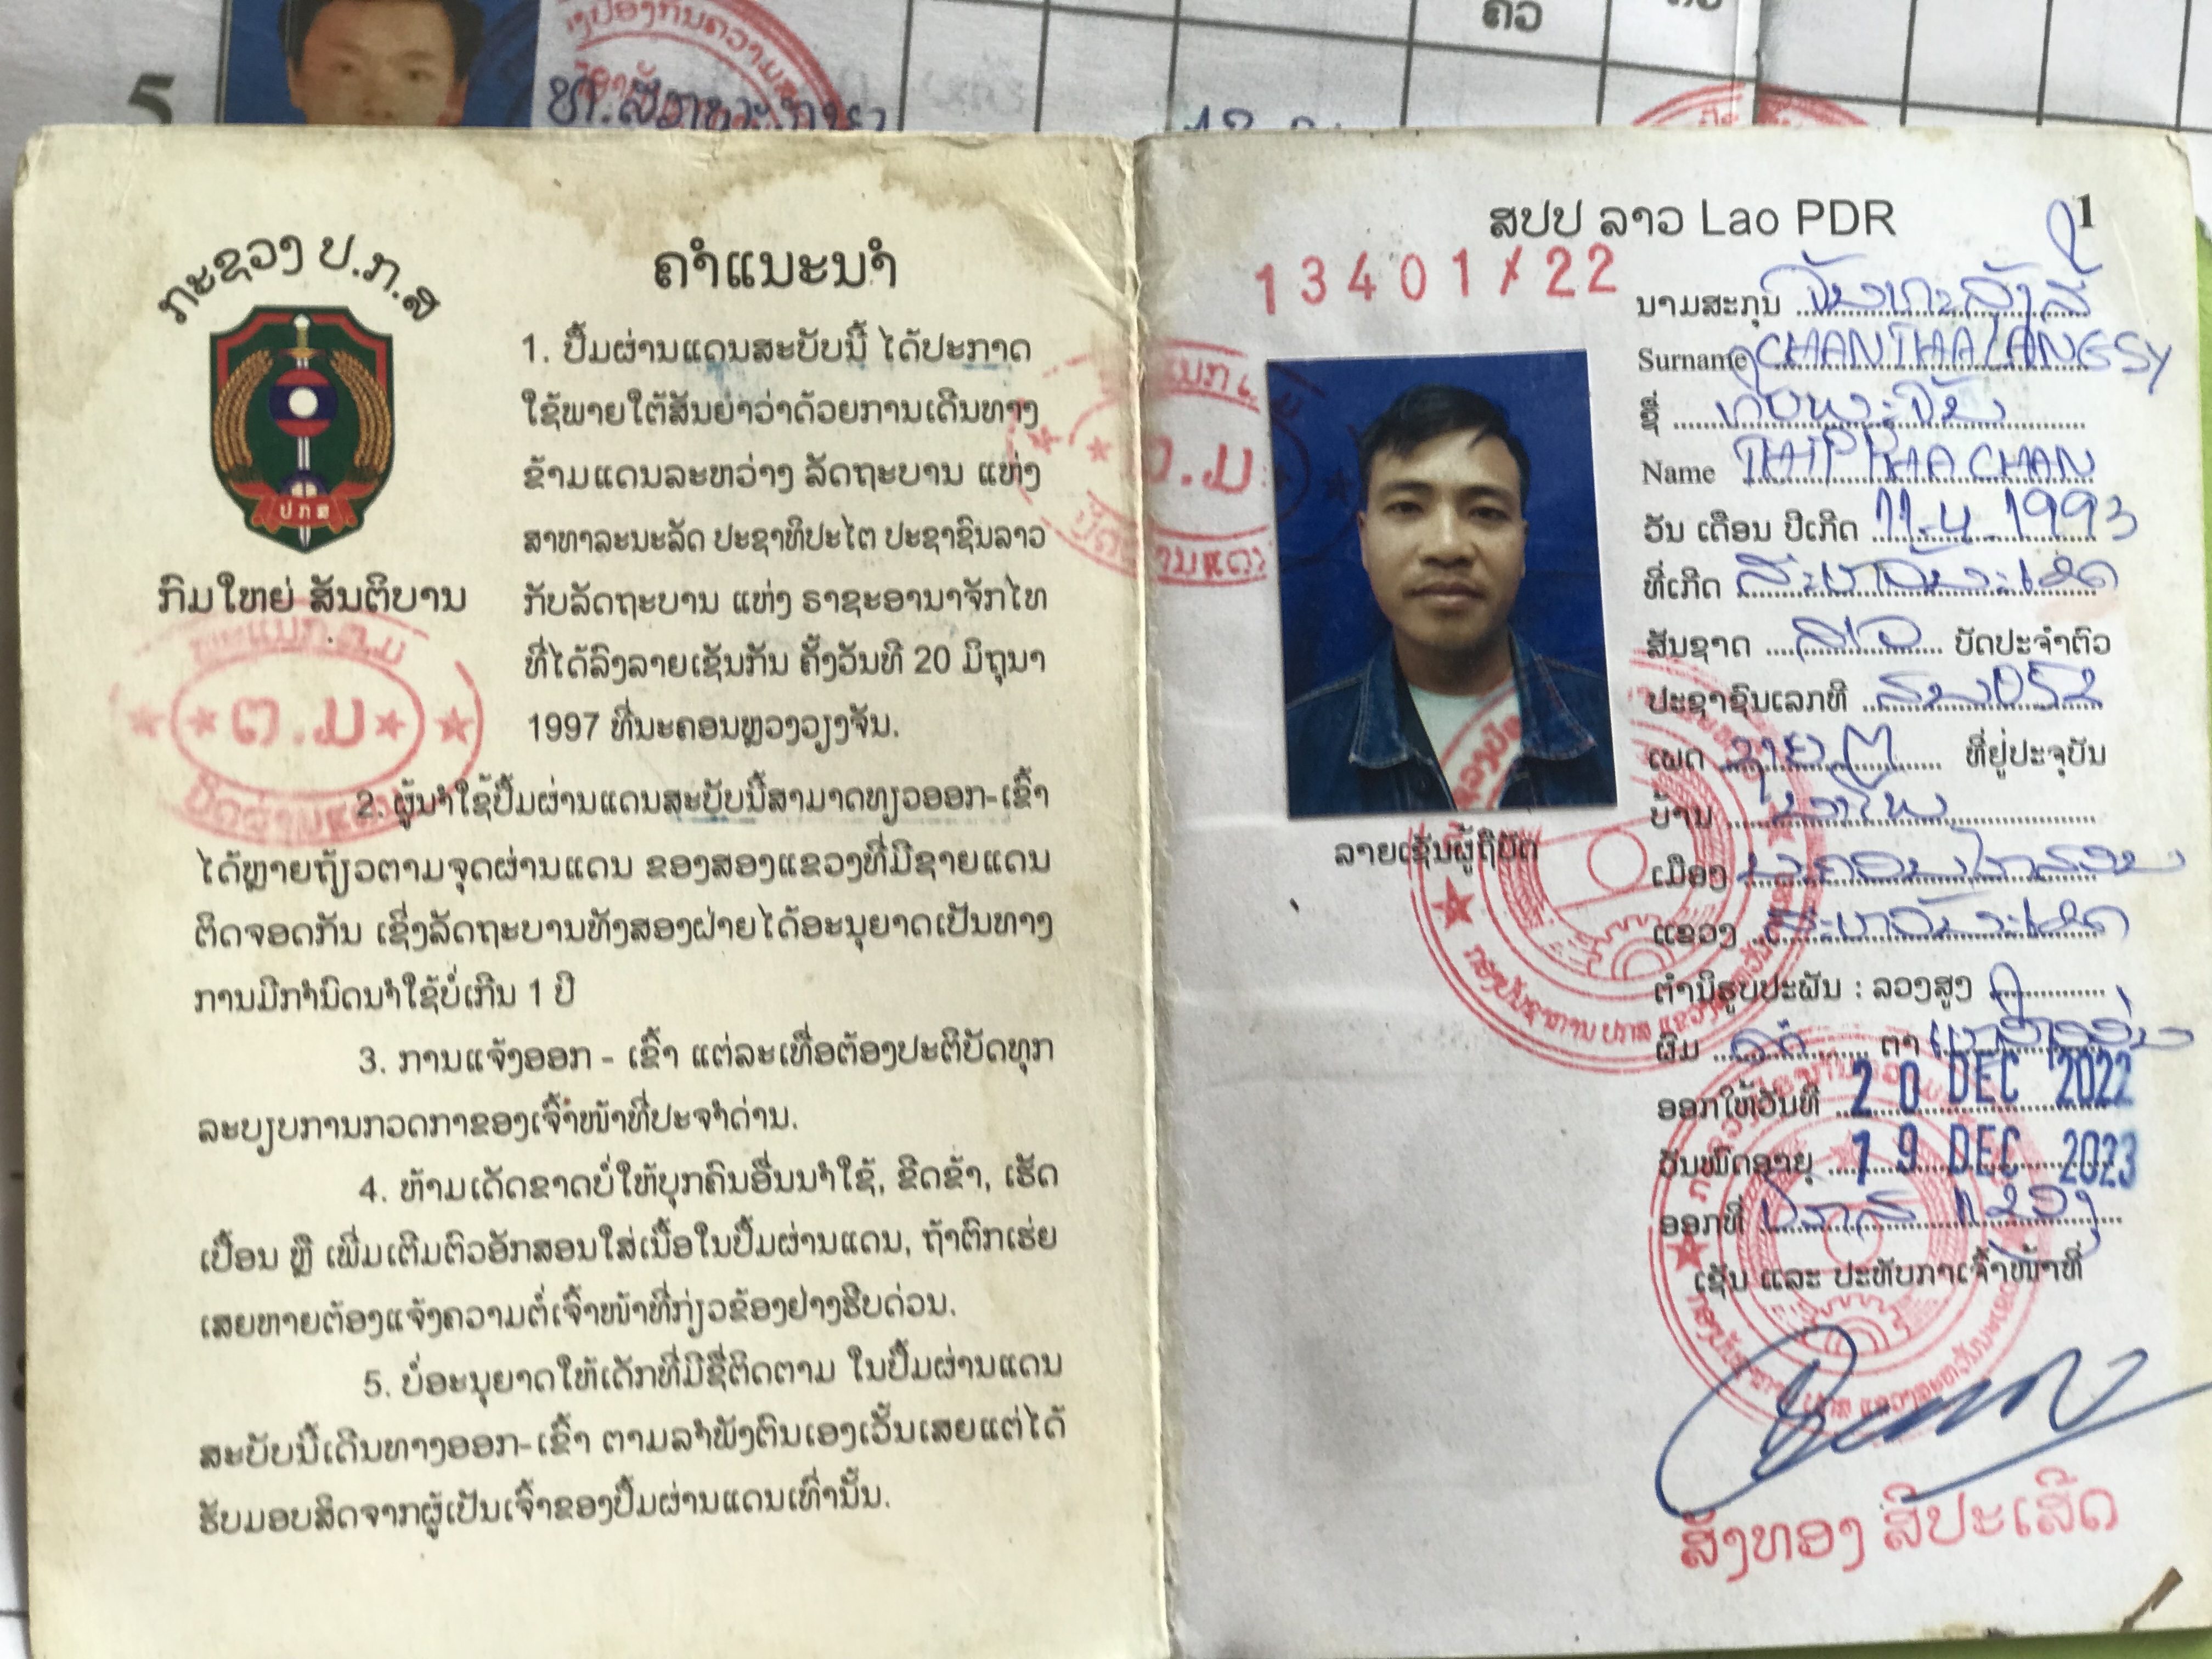 5
ຄົວ
ກະຊວງ ປ.ກ.ສ
ປກສ
ກົມໃຫຍ່ ສັນຕິບານ
ຄຳແນະນຳ
1. ປຶ້ມຜ່ານແດນສະບັບນີ້ ໄດ້ປະກາດ
ໃຊ້ພາຍໃຕ້ສັນຍາວ່າດ້ວຍການເດີນທາງ
ຂ້າມແດນລະຫວ່າງ ລັດຖະບານ ແຫ່ງ
ສາທາລະນະລັດ ປະຊາທິປະໄຕ ປະຊາຊົນລາວ
ກັບລັດຖະບານ ແຫ່ງ ຣາຊະອານາຈັກໄທ
ທີ່ໄດ້ລົງລາຍເຊັນກັນ ຄັ້ງວັນທີ 20 ມິຖຸນາ
1997 ທີ່ນະຄອນຫຼວງວຽງຈັນ.
2. ຜູ້ນຳໃຊ້ປຶ້ມຜ່ານແດນສະບັບນີ້ສາມາດທຽວອອກ-ເຂົ້າ
ໄດ້ຫຼາຍຖ້ຽວຕາມຈຸດຜ່ານແດນ ຂອງສອງແຂວງທີ່ມີຊາຍແດນ
ຕິດຈອດກັນ ເຊິ່ງລັດຖະບານທັງສອງຝ່າຍໄດ້ອະນຸຍາດເປັນທາງ
ການມີກຳນົດນຳໃຊ້ບໍ່ເກີນ 1 ປີ
3. ການແຈ້ງອອກ - ເຂົ້າ ແຕ່ລະເທື່ອຕ້ອງປະຕິບັດທຸກ
ລະບຽບການກວດກາຂອງເຈົ້າໜ້າທີ່ປະຈຳດ່ານ.
4. ຫ້າມເດັດຂາດບໍ່ໃຫ້ບຸກຄົນອື່ນນຳໃຊ້, ຂີດຂ້າ, ເຮັດ
ເປື້ອນ ຫຼື ເພີ່ມເຕີມຕົວອັກສອນໃສ່ເນື້ອໃນປຶ້ມຜ່ານແດນ, ຖ້າຕົກເຮ່ຍ
ເສຍຫາຍຕ້ອງແຈ້ງຄວາມຕໍ່ເຈົ້າໜ້າທີ່ກ່ຽວຂ້ອງຢ່າງຮີບດ່ວນ.
5. ບໍ່ອະນຸຍາດໃຫ້ເດັກທີ່ມີຊື່ຕິດຕາມ ໃນປຶ້ມຜ່ານແດນ
ສະບັບນີ້ເດີນທາງອອກ-ເຂົ້າ ຕາມລຳພັງຕົນເອງເວັ້ນເສຍແຕ່ໄດ້
ຮັບມອບສິດຈາກຜູ້ເປັນເຈົ້າຂອງປຶ້ມຜ່ານແດນເທົ່ານັ້ນ.
ຕ.ມ
1
ສປປ ລາວ Lao PDR
13401/22
ນາມສະກຸນ ຈັນທະລັງສີ
Surname CHANTHALANGSY
ຊື່ ທິບພະຈັນ
Name THIPPHACHAN
ວັນ ເດືອນ ປີເກີດ 11.4.1993
ທີ່ເກີດ ສະຫວັນນະເຂດ
ສັນຊາດ ລາວ ບັດປະຈຳຕົວ
ປະຊາຊົນເລກທີ
ເພດ ຊາຍ ທີ່ຢູ່ປະຈຸບັນ
ບ້ານ
ເມືອງ
ແຂວງ ສະຫວັນນະເຂດ
ຕຳນິຮູບປະພັນ : ລວງສູງ
ຜົມ ດຳ ຕາ
ອອກໃຫ້ວັນທີ 20 DEC 2022
ວັນໝົດອາຍຸ 19 DEC 2023
ອອກທີ່ ປກສ ແຂວງ
ເຊັນ ແລະ ປະທັບກາເຈົ້າໜ້າທີ່
ສັງທອງ ສີປະເສີດ
ລາຍເຊັນຜູ້ຖືບັດ